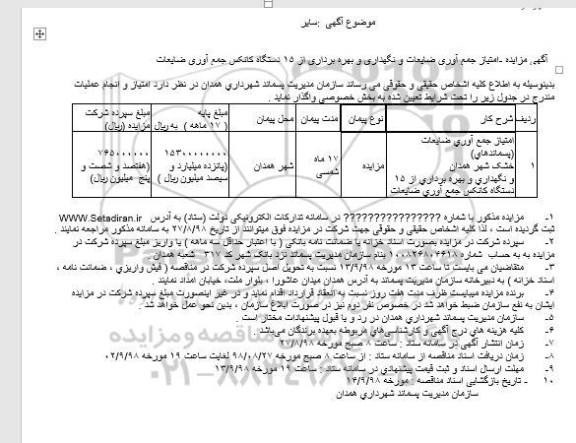 موضوع آگهی :سایر
آگهی مزایده -امتیاز جمع آوری ضایعات و نگهداری و بهره برداری از ۱۵ دستگاه کانکس جمع آوری ضایعات
بدینوسیله به اطلاع کلیه اشخاص حقیقی و حقوقی می رساند سازمان مدیریت پسماند شهرداری همدان در نظر دارد امتیاز و انجام عملیات
مندرج در جدول زیر را تحت شرایط تعیین شده به بخش خصوصی واگذار نماید .
ردیف شرح کار نوع پیمان مدت پیمان محل پیمان مبلغ پایه ( ۱۷ ماهه ) به ریال مبلغ سپرده شرکت مزایده (ریال)
۱ امتیاز جمع آوری ضایعات (پسماندهای) خشک شهر همدان و نگهداری و بهره برداری از ۱۵ دستگاه کانکس جمع آوری ضایعات مزایده ۱۷ ماه شمسی شهر همدان ۱۵۳۰۰۰۰۰۰۰۰ (پانزده میلیارد و سیصد میلیون ریال ) ۷۶۵۰۰۰۰۰۰ (هفتصد و شصت و پنج میلیون ریال)
۱- مزایده مذکور با شماره ???????????????? در سامانه تدارکات الکترونیکی دولت (ستاد) به آدرس WWW.Setadiran.ir
ثبت گردیده است ، لذا کلیه اشخاص حقیقی و حقوقی جهت شرکت در مزایده فوق میتوانند از تاریخ ۲۷/۸/۹۸ به سامانه مذکور مراجعه نمایند .
۲- سپرده شرکت در مزایده بصورت اسناد خزانه یا ضمانت نامه بانکی ( با اعتبار حداقل سه ماهه ) یا واریز مبلغ سپرده شرکت در
مزایده به به حساب شماره بنام سازمان مدیریت پسماند نزد بانک شهر کد ۳۱۷ شعبه همدان
۳- متقاضیان می بایست تا ساعت ۱۳ مورخه ۱۳/۹/۹۸ نسبت به تحویل اصل سپرده شرکت در مناقصه ( فیش واریزی ، ضمانت نامه ،
اسناد خزانه ) به دبیرخانه سازمان مدیریت پسماند به آدرس همدان میدان عاشورا ، بلوار ملت، خیابان امداد نمایند
۴- برنده مزایده میبایست ظرف مدت هفت روز نسبت به انعقاد قرارداد اقدام نمایند و در غیر اینصورت مبلغ سپرده شرکت در مزایده
ایشان به نفع سازمان ضبط خواهد شد در خصوص نفر دوم نیز در صورت ابلاغ سازمان ، بدین نحو عمل خواهد شد .
۵- سازمان مدیریت پسماند شهرداری همدان در رد و یا قبول پیشنهادات مختار است .
۶- کلیه هزینه های درج آگهی و کارشناسی‌های مربوطه بعهده برندگان می‌باشد .
۷- زمان انتشار آگهی در سامانه ستاد : ساعت ۸ صبح مورخه ۲۷/۸/۹۸
۸- زمان دریافت اسناد مناقصه از سامانه ستاد : از ساعت ۸ صبح مورخه ۹۸/۰۸/۲۷ لغایت ساعت ۱۹ مورخه ۰۲/۹/۹۸
۹- مهلت ارسال اسناد و ثبت قیمت پیشنهادی در سامانه ستاد : ساعت ۱۹ مورخه ۱۳/۹/۹۸
۱۰- تاریخ بازگشایی اسناد مناقصه : مورخه ۱۴/۹/۹۸
سازمان مدیریت پسماند شهرداری همدان